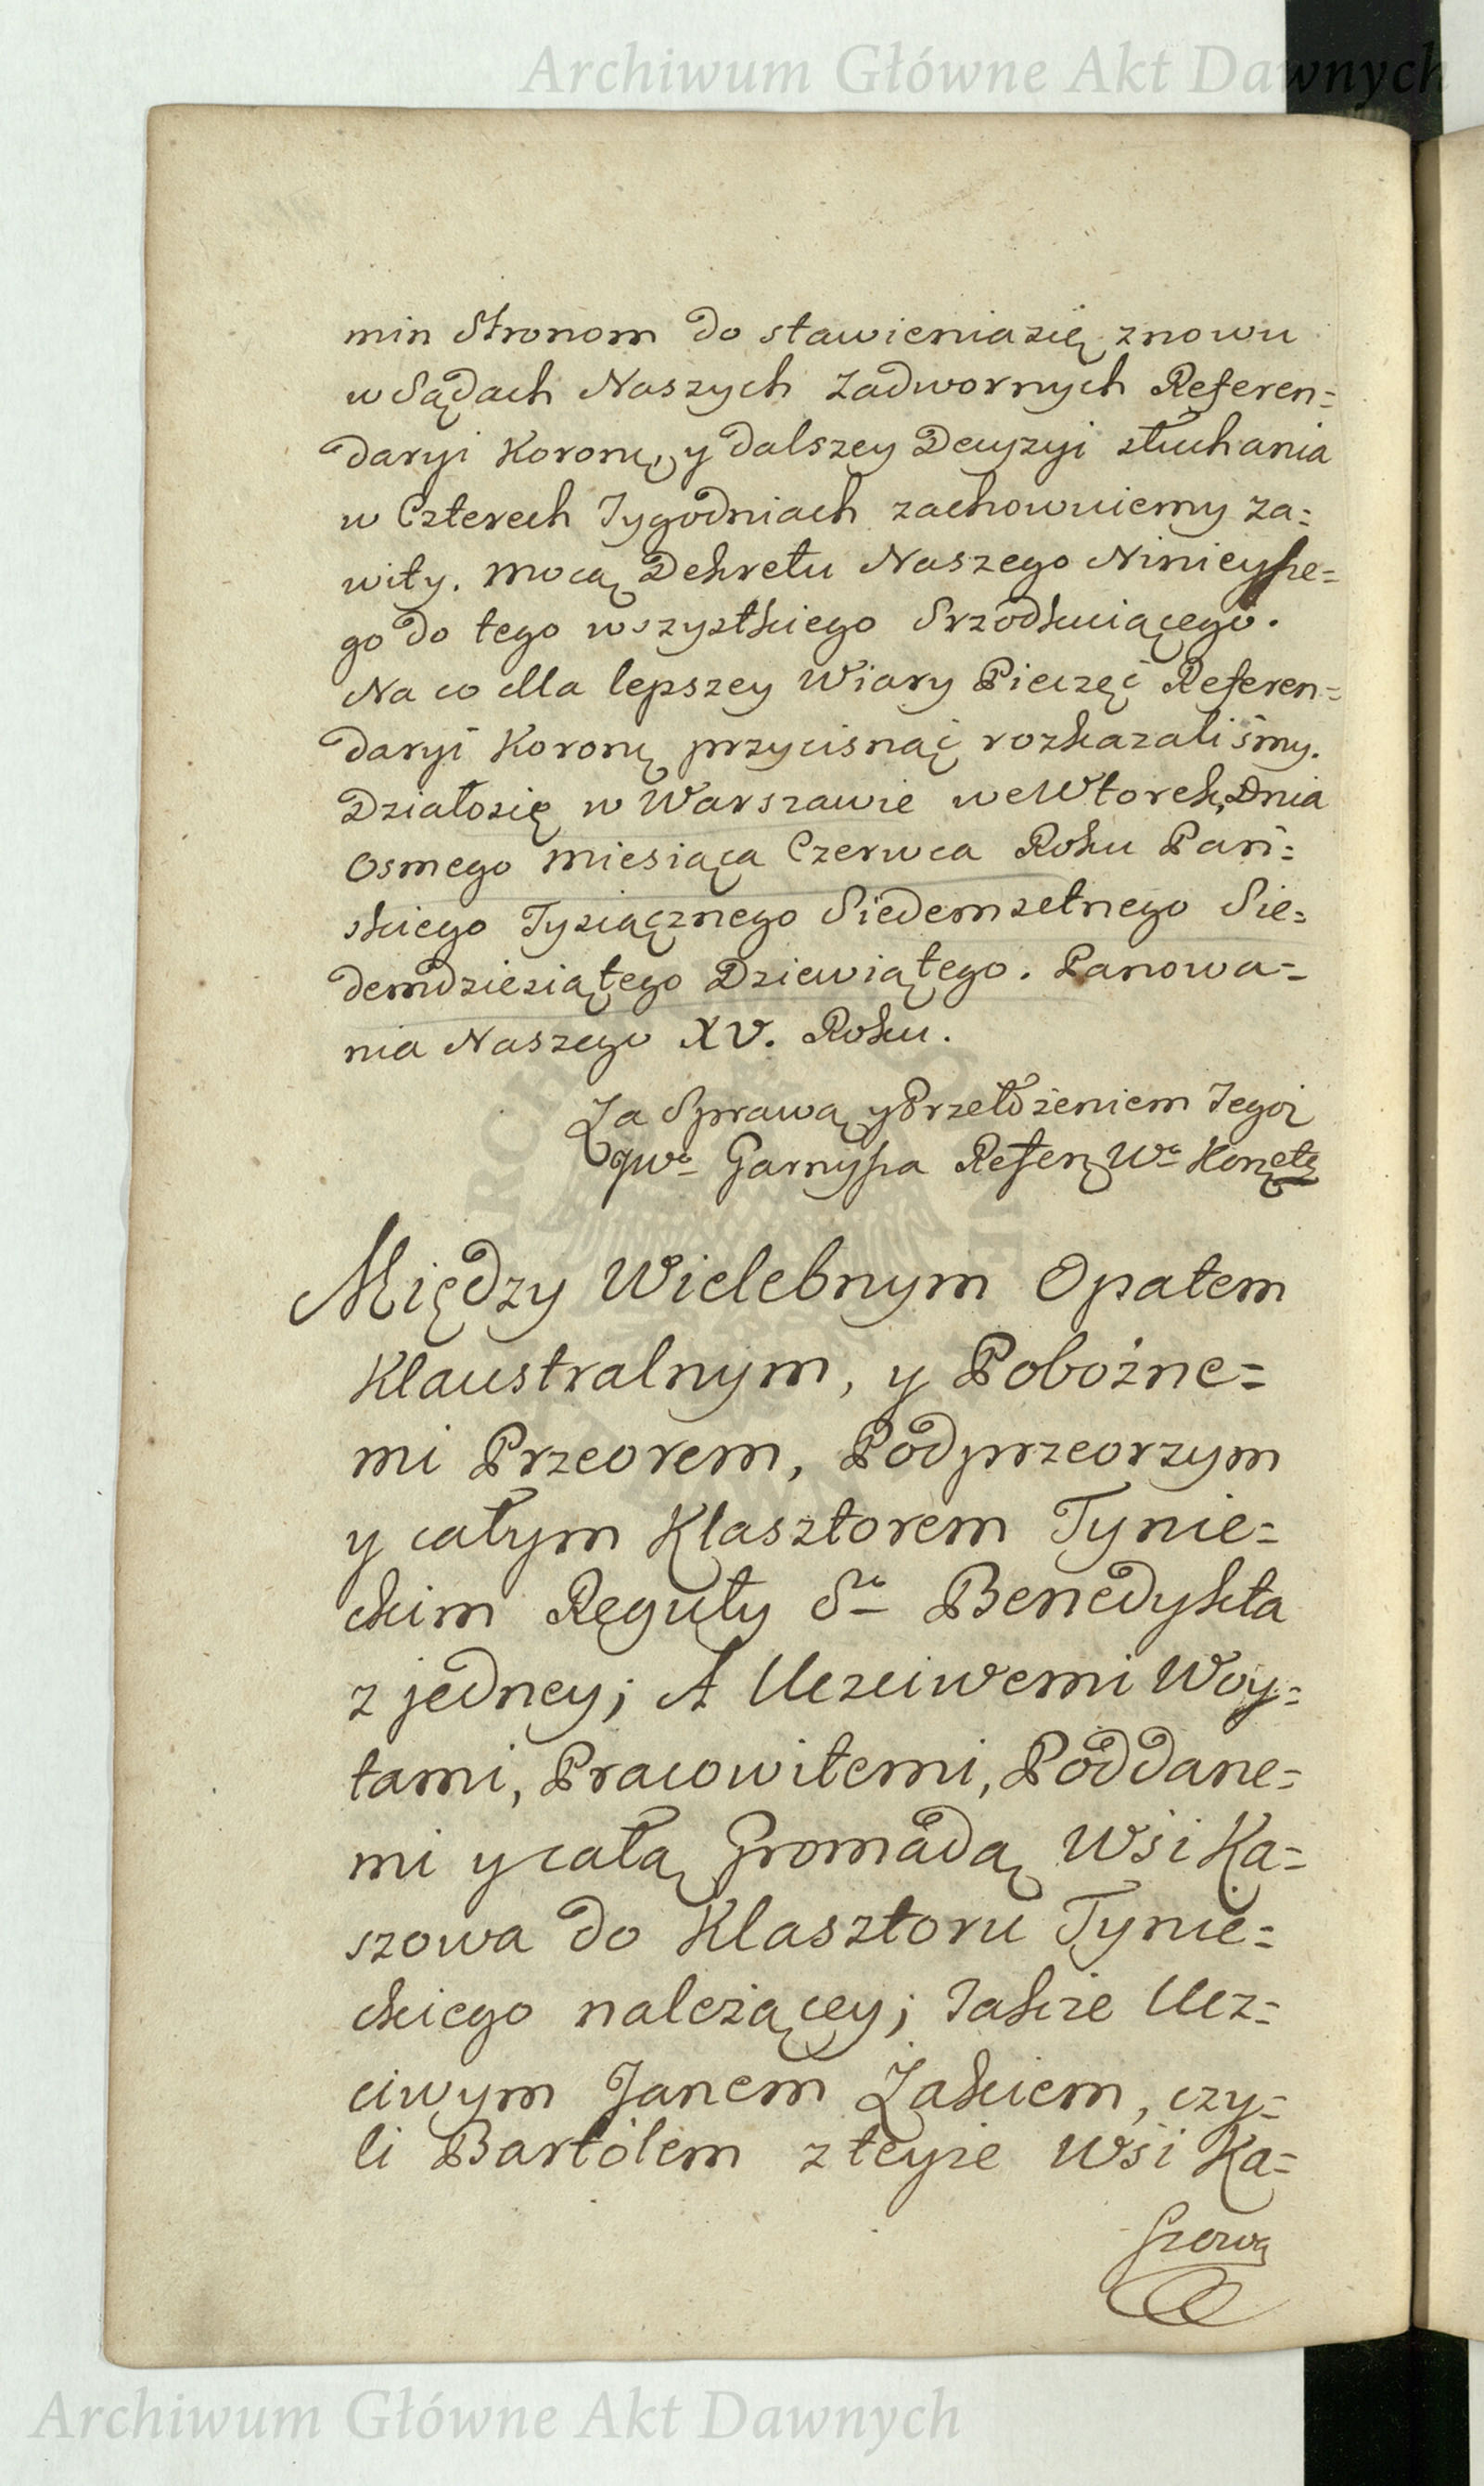 Archiwum Główne Akt Dawnych
min Stronom do stawienia się znowu
w Sądach Naszych Zadwornych Referen=
daryi Koronę, y dalszey Decyzyi słuchania
w Czterech Tygodniach zachowuiemy za=
wity. Mocą Dekretu Naszego Ninieysze=
go do tego wszystkiego Srzodkuiącego.
Na co dla lepszey Wiary Pieczęć Referen=
daryi Koronę przycisnąć rozkazaliśmy.
Działo się w Warszawie we Wtorek, Dnia
Osmego Miesiąca Czerwca Roku Pań=
skiego Tysiącznego Siedemsetnego Sie=
demdziesiątego Dziewiątego. Panowa=
nia Naszego XV. Roku.
Za Sprawą y Przełożeniem Jegoż
Garnysza Referę Wo Konę
Między Wielebnym Opatem
Klaustralnym, y Pobożne=
mi Przeorem, Podprzeorzym
y całym Klasztorem Tynie=
ckim Reguły So Benedykta
z jedney; A Uczciwemi Woy=
tami, Pracowitemi, Poddane=
mi y całą Gromadą Wsi Ka=
szowa do Klasztoru Tynie=
ckiego należącey; Także Ucz=
ciwym Janem Żakiem, czy=
li Bartólem z teyże Wsi Ka=
szowa
Archiwum Główne Akt Dawnych